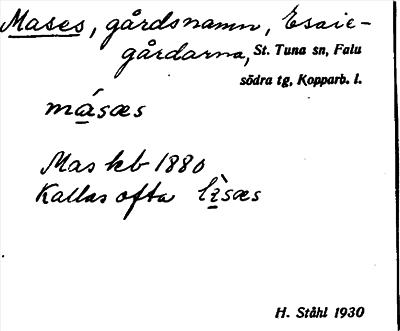 Mases, gårdsnamn, Esaie-
gårdarna, St. Tuna sn, Falu
södra tg, Kopparb. l.
mású̱sæs
Mas hb 1880
Kallas ofta lìsæs
H. Ståhl 1930